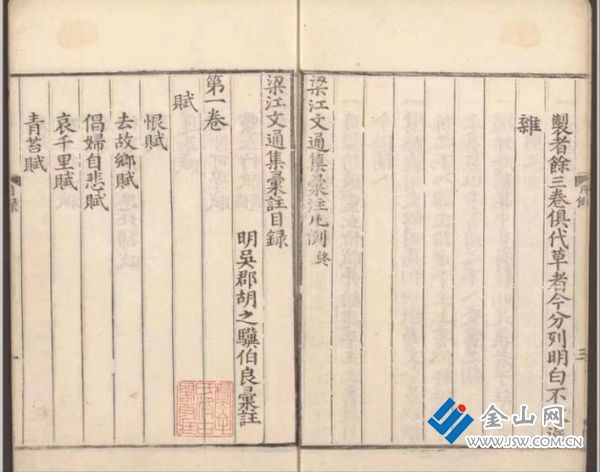 製者餘三卷俱代草者今分列明白不
雜
梁江文通集彙注凡例終
梁江文通集彙註目録
明吳郡胡之驥伯良彙註
第一卷
賦
恨賦
去故鄉賦
倡婦自悲賦
哀千里賦
青苔賦
三
金山网
www.JSW.com.cn